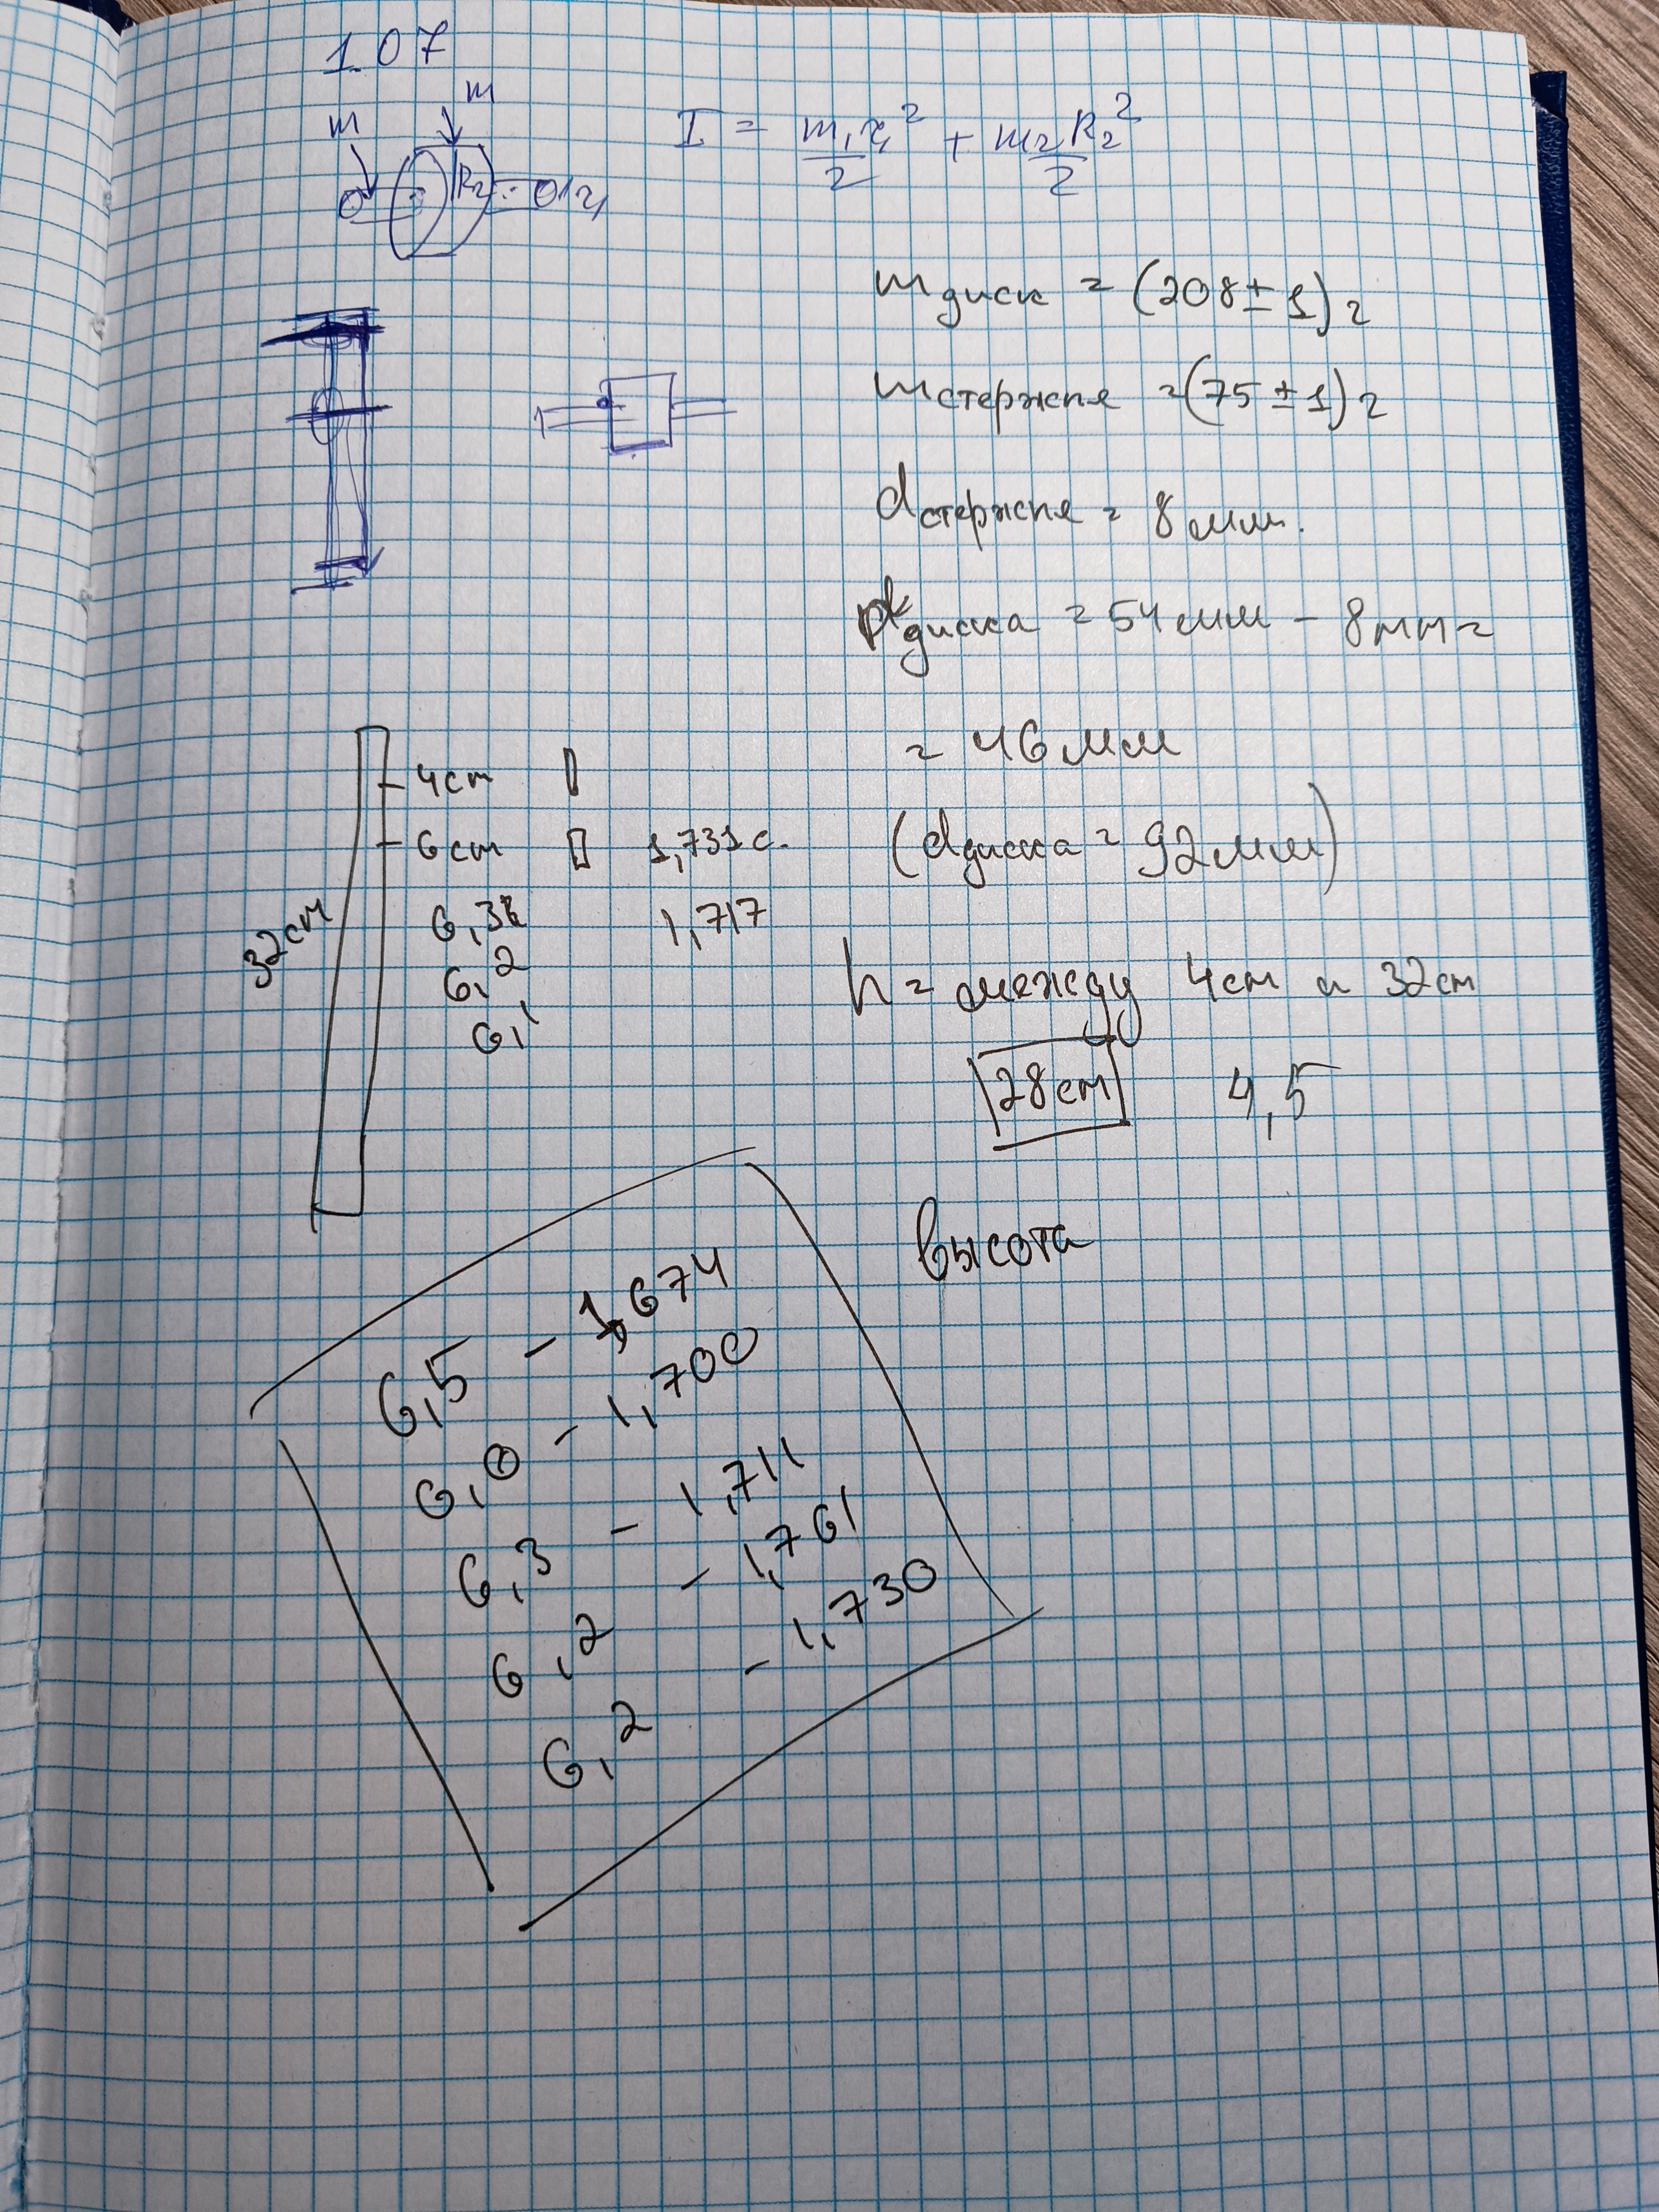 1.07
m
m
I = m₁r₁²/2 + m₂R₂²/2
R₂
r₁
mдиск = (208 ± 1) г
mстержня = (75 ± 1) г
dстержня = 8 мм.
диска = 54 мм - 8 мм =
= 46 мм
(dдиска = 92 мм)
32 cm
4 cm
6 cm 1,731 с.
6,3 1,717
6,2
6,1
h = между 4 см и 32 см
28 см 4,5
высота
6,5 - 1,674
6,0 - 1,700
6,3 - 1,711
6,2 - 1,761
6,2 - 1,730